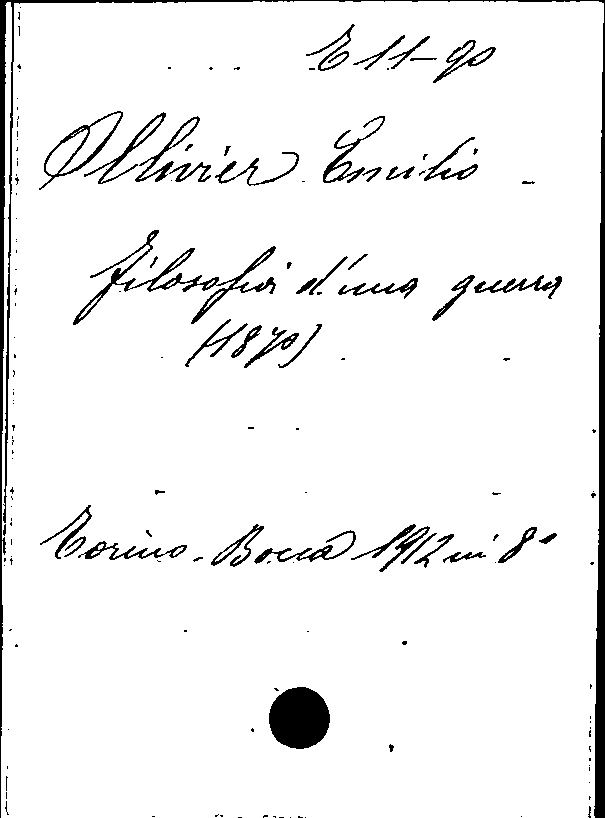 E 11-90
Ollivier Emilio
Filosofia d'una guerra
(1870)
Torino - Bocca 1912 in 8°